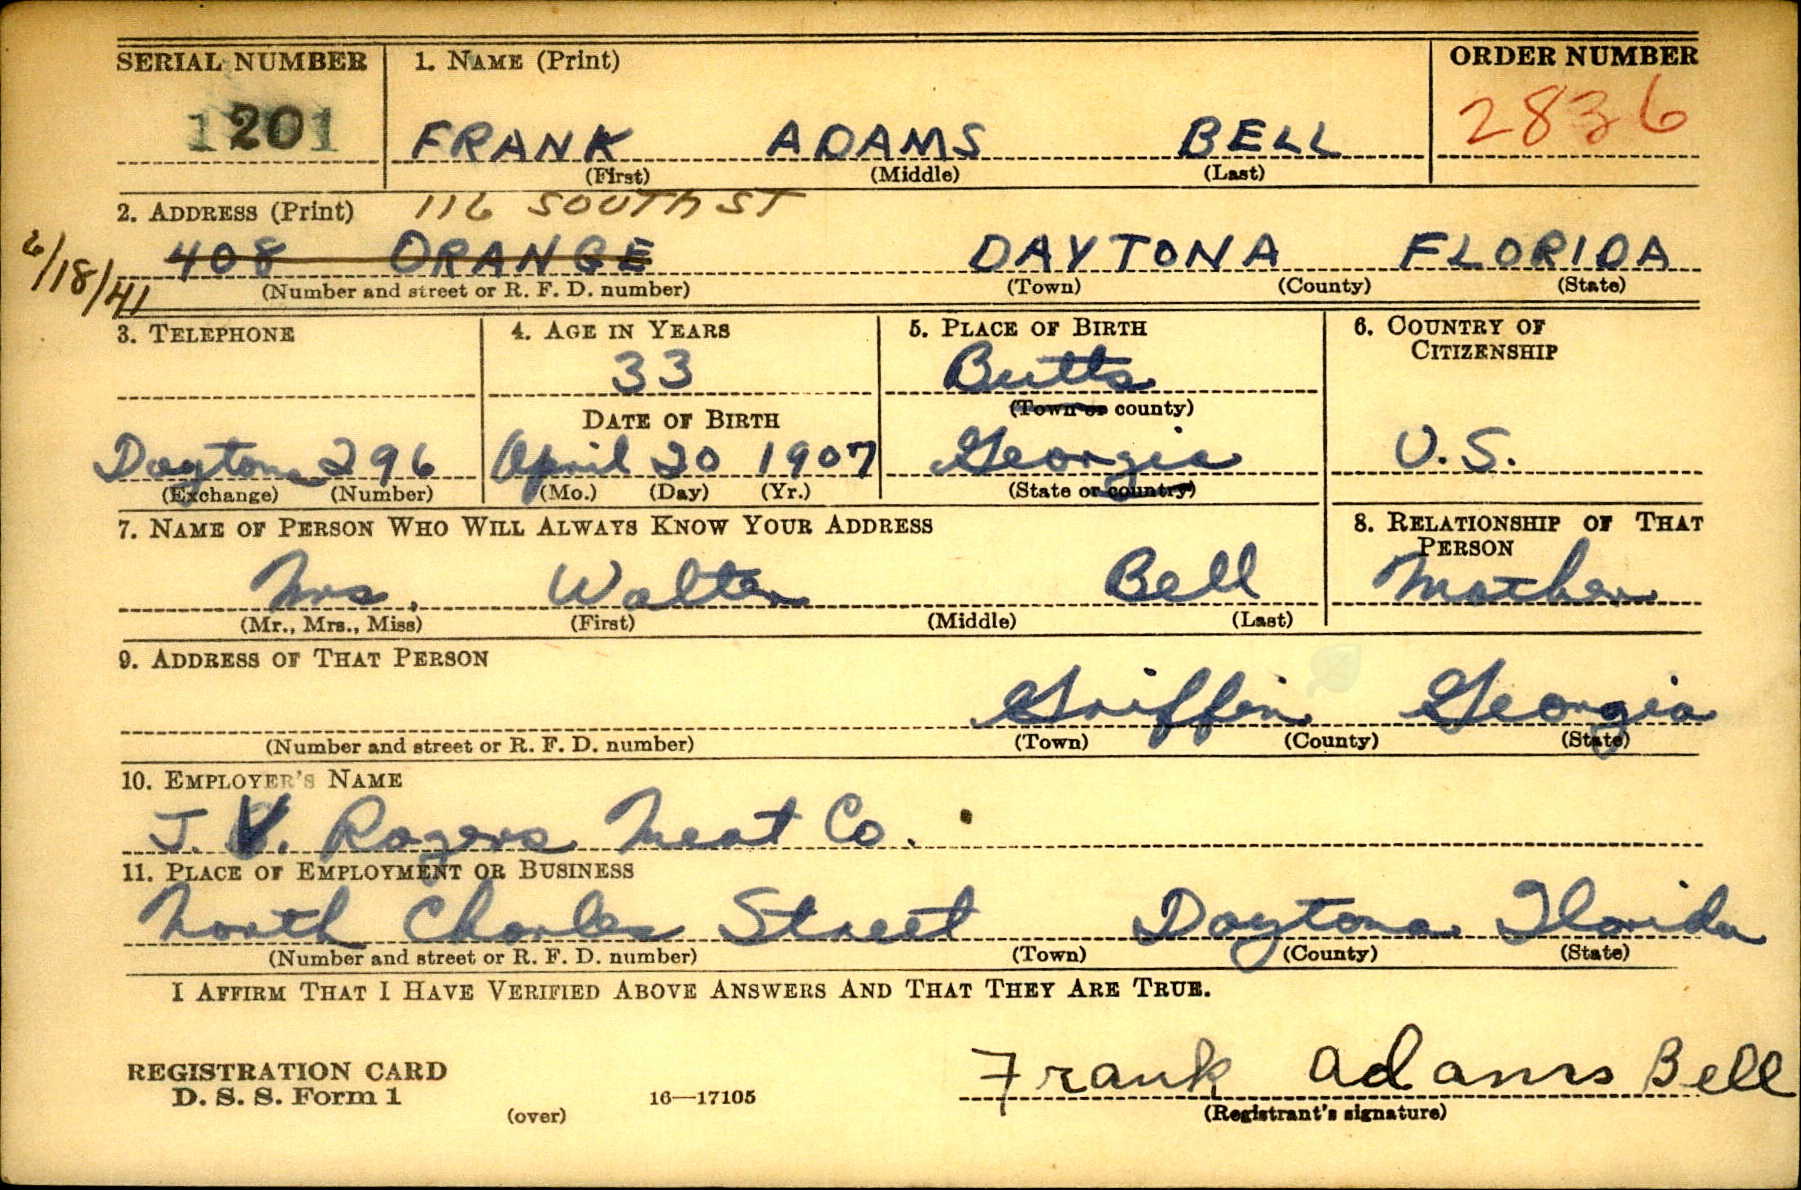 SERIAL NUMBER 1. NAME (Print) ORDER NUMBER
201 FRANK ADAMS BELL 2836
(First) (Middle) (Last)
2. ADDRESS (Print) 116 SOUTH ST
6/18/41 408 ORANGE DAYTONA FLORIDA
(Number and street or R. F. D. number) (Town) (County) (State)
3. TELEPHONE 4. AGE IN YEARS 5. PLACE OF BIRTH 6. COUNTRY OF
CITIZENSHIP
33 Butts
(Town or county)
DATE OF BIRTH
Daytona 296 April 20 1907 Georgia U.S.
(Exchange) (Number) (Mo.) (Day) (Yr.) (State or country)
7. NAME OF PERSON WHO WILL ALWAYS KNOW YOUR ADDRESS 8. RELATIONSHIP OF THAT
PERSON
Mrs. Walter Bell Mother
(Mr., Mrs., Miss) (First) (Middle) (Last)
9. ADDRESS OF THAT PERSON
Griffin Georgia
(Number and street or R. F. D. number) (Town) (County) (State)
10. EMPLOYER'S NAME
J. V. Rogers Meat Co.
11. PLACE OF EMPLOYMENT OR BUSINESS
North Charles Street Daytona Florida
(Number and street or R. F. D. number) (Town) (County) (State)
I AFFIRM THAT I HAVE VERIFIED ABOVE ANSWERS AND THAT THEY ARE TRUE.
REGISTRATION CARD
D. S. S. Form 1
(over) 16—17105
Frank Adams Bell
(Registrant's signature)